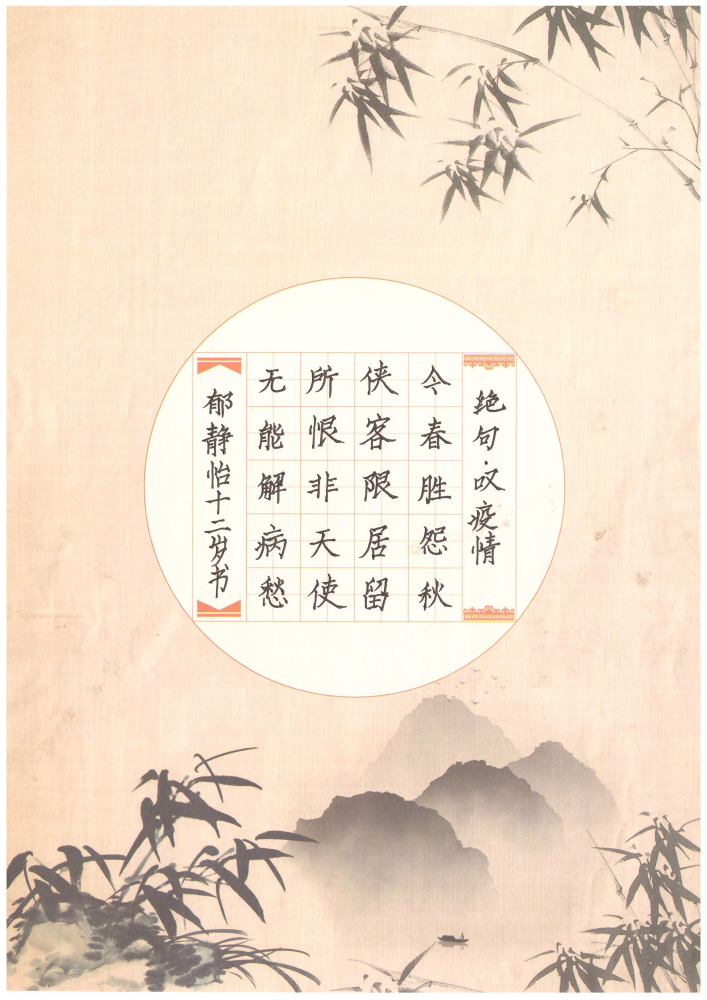 绝句·叹疫情
今春胜怨秋
侠客限居留
所恨非天使
无能解病愁
郁静怡十二岁书